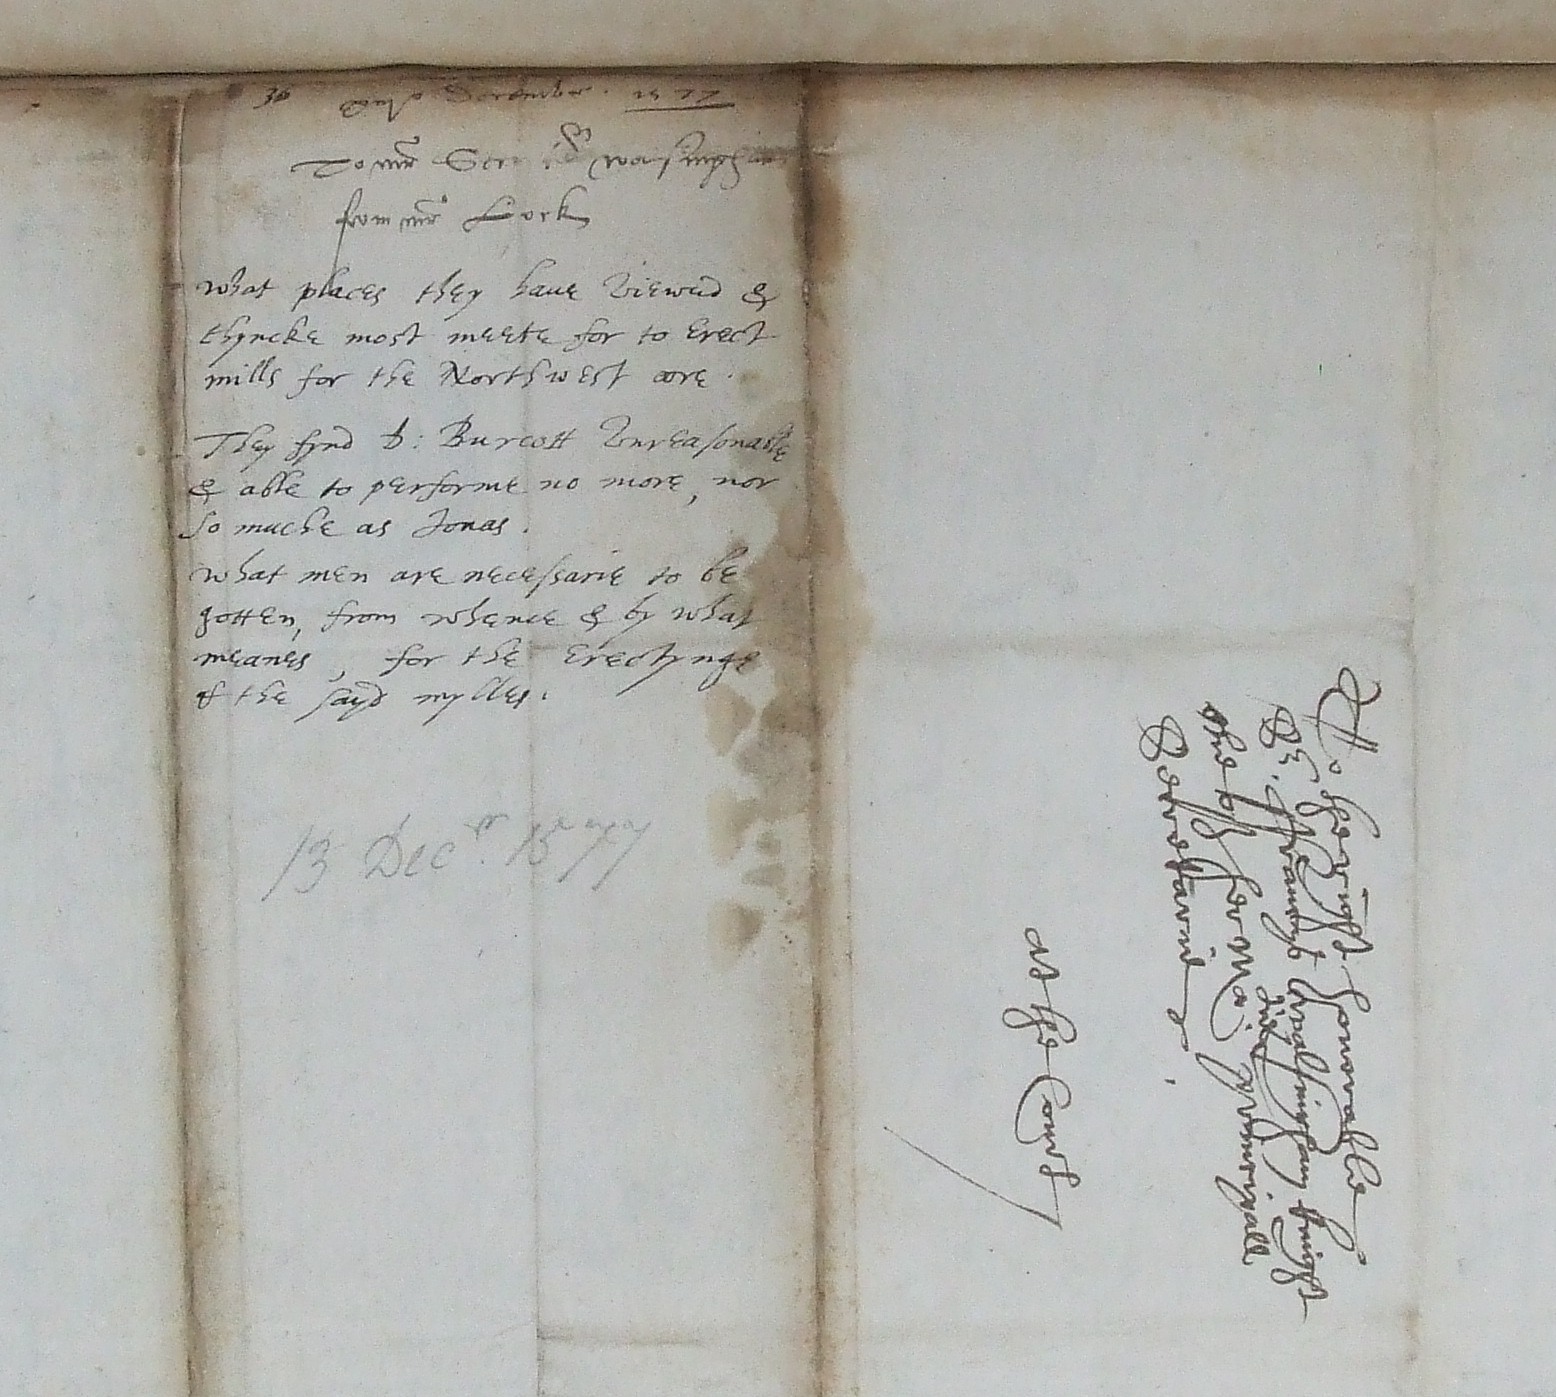 36 December . 1577
To mr Secr Walsingham
from mr Lock
what places they have viewed &
thyncke most meete for to erect
mills for the Northwest oore .
They fynd D : Burcott Unreasonable
& able to performe no more , nor
so muche as Jonas .
what men are necessarie to be
gotten , from whence & by what
meanes , for the erectynge
of the sayd mylles .
13 Decr. 1577
To the right honorable
Sr. ffrauncys Walsingham knight
one of her Ma. principall
Secretaries .
at the Court